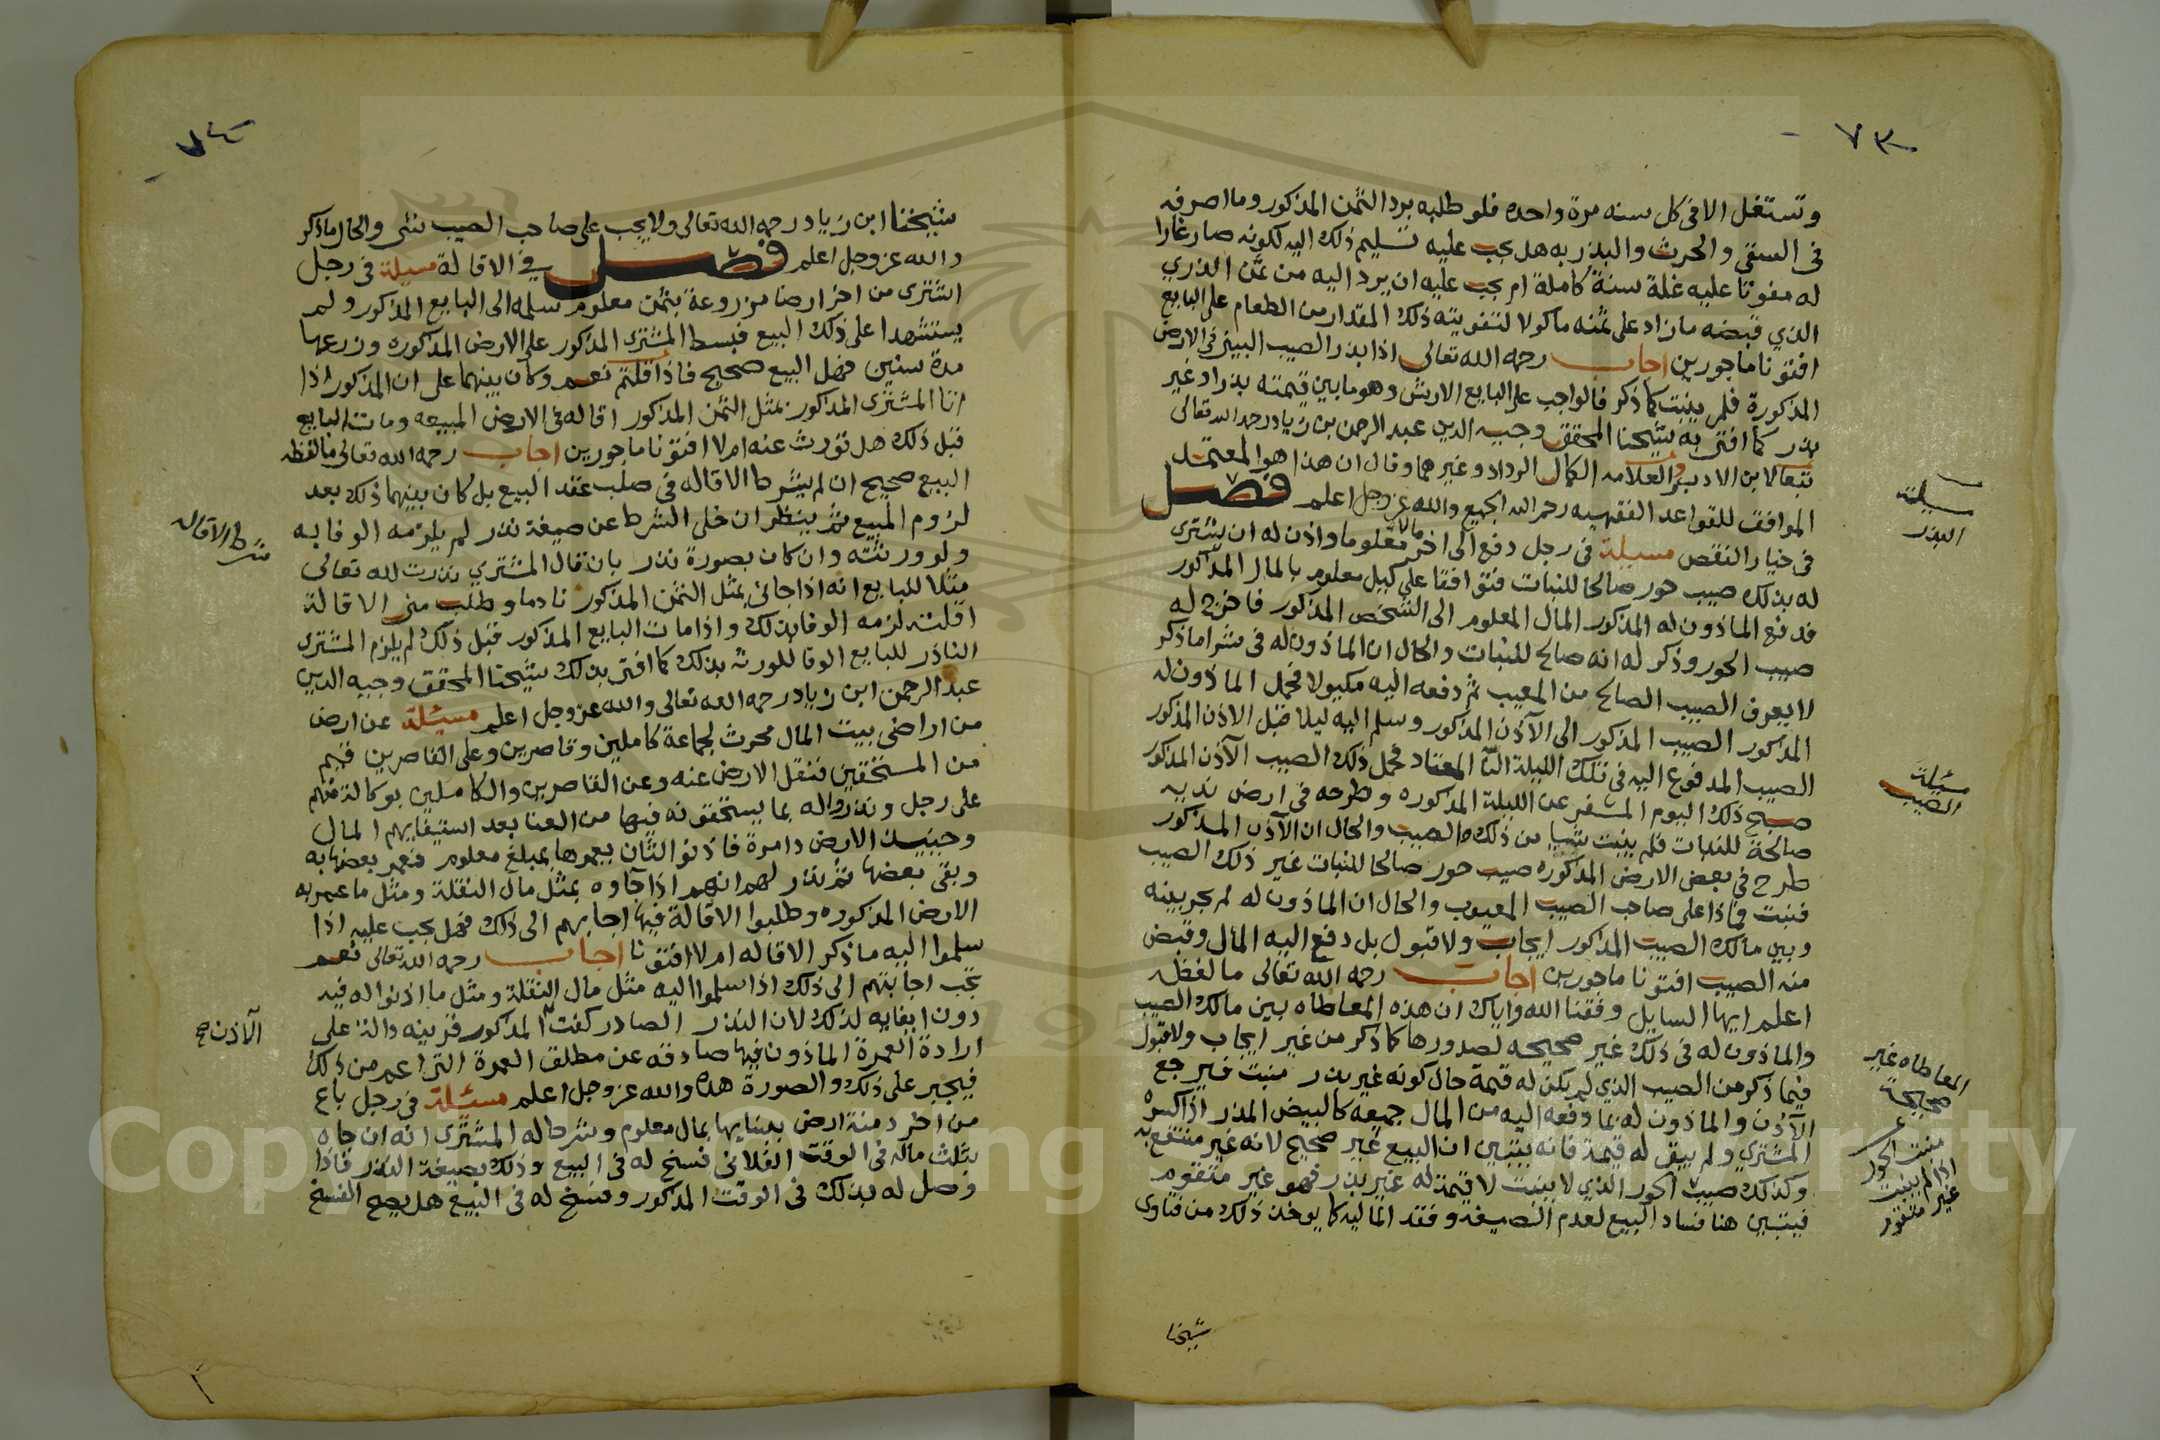 ٧٣
وتستغل الا في كل سنه مرة واحده فلو طلبه برد الثمن المذكور وما اصرفه
في السقي والحرث والبذر به هل يجب عليه تسليم ذلك اليه لكونه صار غارا
له مفوتا عليه غلة سنة كاملة ام يجب عليه ان يرد اليه من ثمن الذري
الذي قبضه ما زاد على ثمنه ماكولا لتفويته ذلك المقدار من الطعام على البايع
افتونا ماجورين اجاب رحمه الله تعالى اذا بذر الصيب البيني في الارض
المذكورة فلم ينبت كما ذكر فالواجب على البايع الارش وهو ما بين قيمته بذرا وغير
بذر كما افتى به شيخنا المحقق وجيه الدين عبد الرحمن بن زياد رحمه الله تعالى
تبعا لابن الاديب والعلامه الكمال الرداد وغيرهما وقال ان هذا هو المعتمد
الموافق للقواعد الفقهيه رحم الله الجميع والله عز وجل اعلم فصل
في خيار النقص مسيلة في رجل دفع الى اخر مالا معلوما واذن له ان يشتري
له بذلك صيب حور صالحا للنبات فتوافقا على كيل معلوم بالمال المذكور
فدفع الماذون له المذكور المال المعلوم الى الشخص المذكور فاخرج له
صيب الحور وذكر له انه صالح للنبات والحال ان الماذون له في شرا ما ذكر
لا يعرف الصيب الصالح من المعيب ثم دفعه اليه مكيولا فحمل الماذون له
المذكور الصيب المذكور الى الآذن المذكور وسلم اليه ليلا فبل الاذن المذكور
الصيب المدفوع اليه في تلك الليلة البل المعتاد فحمل ذلك الصيب الآذن المذكور
صبح ذلك اليوم المسفر عن الليلة المذكوره وطرحه في ارض نديه
صالحة للنبات فلم ينبت شيا من ذلك الصيب والحال ان الآذن المذكور
طرح في بعض الارض المذكوره صيب حور صالحا للنبات غير ذلك الصيب
فنبت فماذا على صاحب الصيب المعيوب والحال ان الماذون له لم يجر بينه
وبين مالك الصيب المذكور ايجاب ولا قبول بل دفع اليه المال وقبض
منه الصيب افتونا ماجورين اجاب رحمه الله تعالى ما لفظه
اعلم ايها السايل وفقنا الله واياك ان هذه المعاطاه بين مالك الصيب
والماذون له في ذلك غير صحيحه لصدورها كما ذكر من غير ايجاب ولا قبول
فيما ذكر من الصيب الذي لم يكن له قيمة حال كونه غير بذر منبت فيرجع
الآذن والماذون له بما دفعه اليه من المال جميعه كالبيض المذر اذا كسره
المشتري ولم يبق له قيمة فانه يتبين ان البيع غير صحيح لانه غير منتفع به
وكذلك صيب الحور الذي لا ينبت لا قيمة له غير بذر فهو غير متقوم
فيتبين هنا فساد البيع لعدم الصيغه وفقد الماليه كما يوخذ ذلك من فتاوى
شيخنا
مسيلة
البذر
مسئلة
الصيب
المعاطاه غير
صحيحة
منبت الحور
اذا لم ينبت
غير متقوم
٧٤
شيخنا ابن زياد رحمه الله تعالى ولا يجب على صاحب الصيب شي والحال ما ذكر
والله عز وجل اعلم فصل في الاقالة مسيلة في رجل
اشترى من اخر ارضا مزروعة بثمن معلوم سلمه الى البايع المذكور ولم
يستشهدا على ذلك البيع فبسط المشتري المذكور على الارض المذكوره وزرعها
مدة سنين فهل البيع صحيح فاذا قلتم نعم وكان بينهما على ان المذكور اذا
اتا المشتري المذكور بمثل الثمن المذكور اقاله في الارض المبيعه ومات البايع
قبل ذلك هل تورث عنه ام لا افتونا ماجورين اجاب رحمه الله تعالى ما لفظه
البيع صحيح ان لم يشرط الاقاله في صلب عقد البيع بل كان بينهما ذلك بعد
لزوم المبيع ثم ينظر ان خلى الشرط عن صيغة نذر لم يلزمه الوفا به
ولو ورثته وان كان بصورة نذر بان قال المشتري نذرت لله تعالى
مثلا للبايع انه اذا جاني بمثل الثمن المذكور نادما وطلب مني الاقالة
اقلته لزمه الوفا بذلك واذا مات البايع المذكور قبل ذلك لم يلزم المشتري
الناذر للبايع الوفا للورثه بذلك كما افتى بذلك شيخنا المحقق وجيه الدين
عبد الرحمن ابن زياد رحمه الله تعالى والله عز وجل اعلم مسئلة عن ارض
من اراضي بيت المال محرث لجماعة كاملين وقاصرين وعلى القاصرين قيم
من المستحقين فنقل الارض عنه وعن القاصرين والكاملين بوكالة منهم
على رجل ونذروا له بما يستحقونه فيها من العنا بعد استيفايهم المال
وحينيذ الارض دامرة فاذنوا لثان يعمرها بمبلغ معلوم فعمر بعضها به
وبقي بعضها ثم نذر لهم انهم اذا جاوه بمثل مال النقلة ومثل ما عمر به
الارض المذكوره وطلبوا الاقالة فيها اجابهم الى ذلك فهل يجب عليه اذا
سلموا اليه ما ذكر الاقاله ام لا افتونا اجاب رحمه الله تعالى نعم
تجب اجابتهم الى ذلك اذا سلموا اليه مثل مال النقلة ومثل ما اذنوا له فيه
دون ابقايه لذلك لان النذر الصادر كفت المذكور قرينه دالة على
ارادة العمرة الماذون فيها صادقه عن مطلق العمرة التي اعم من ذلك
فيجبر على ذلك والصورة هذه والله عز وجل اعلم مسئلة في رجل باع
من اخر دمنة ارض بعنايها بمال معلوم وشرط له المشتري انه ان جاه
بثلث ماله في الوقت الفلاني فسخ له في البيع وذلك بصيغة النذر فاذا
وصل له بذلك في الوقت المذكور وفسخ له في البيع هل يصح الفسخ
شرط الاقاله
الآذن صح